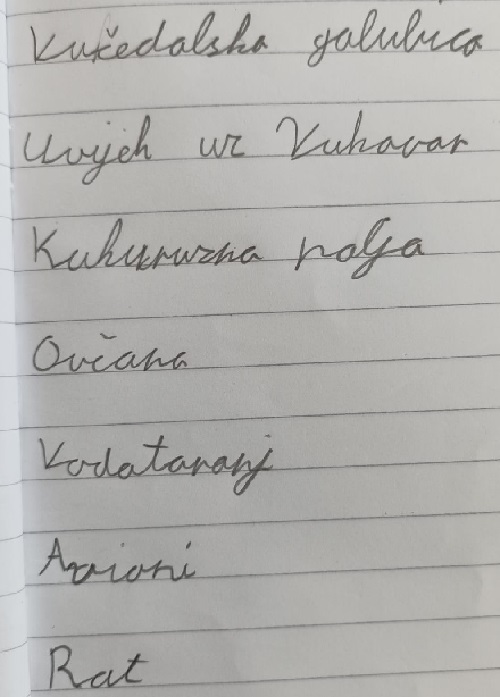 Vučedolska golubica
Uvijek uz Vukovar
Kukuruzna polja
Ovčara
Vodotoranj
Avioni
Rat